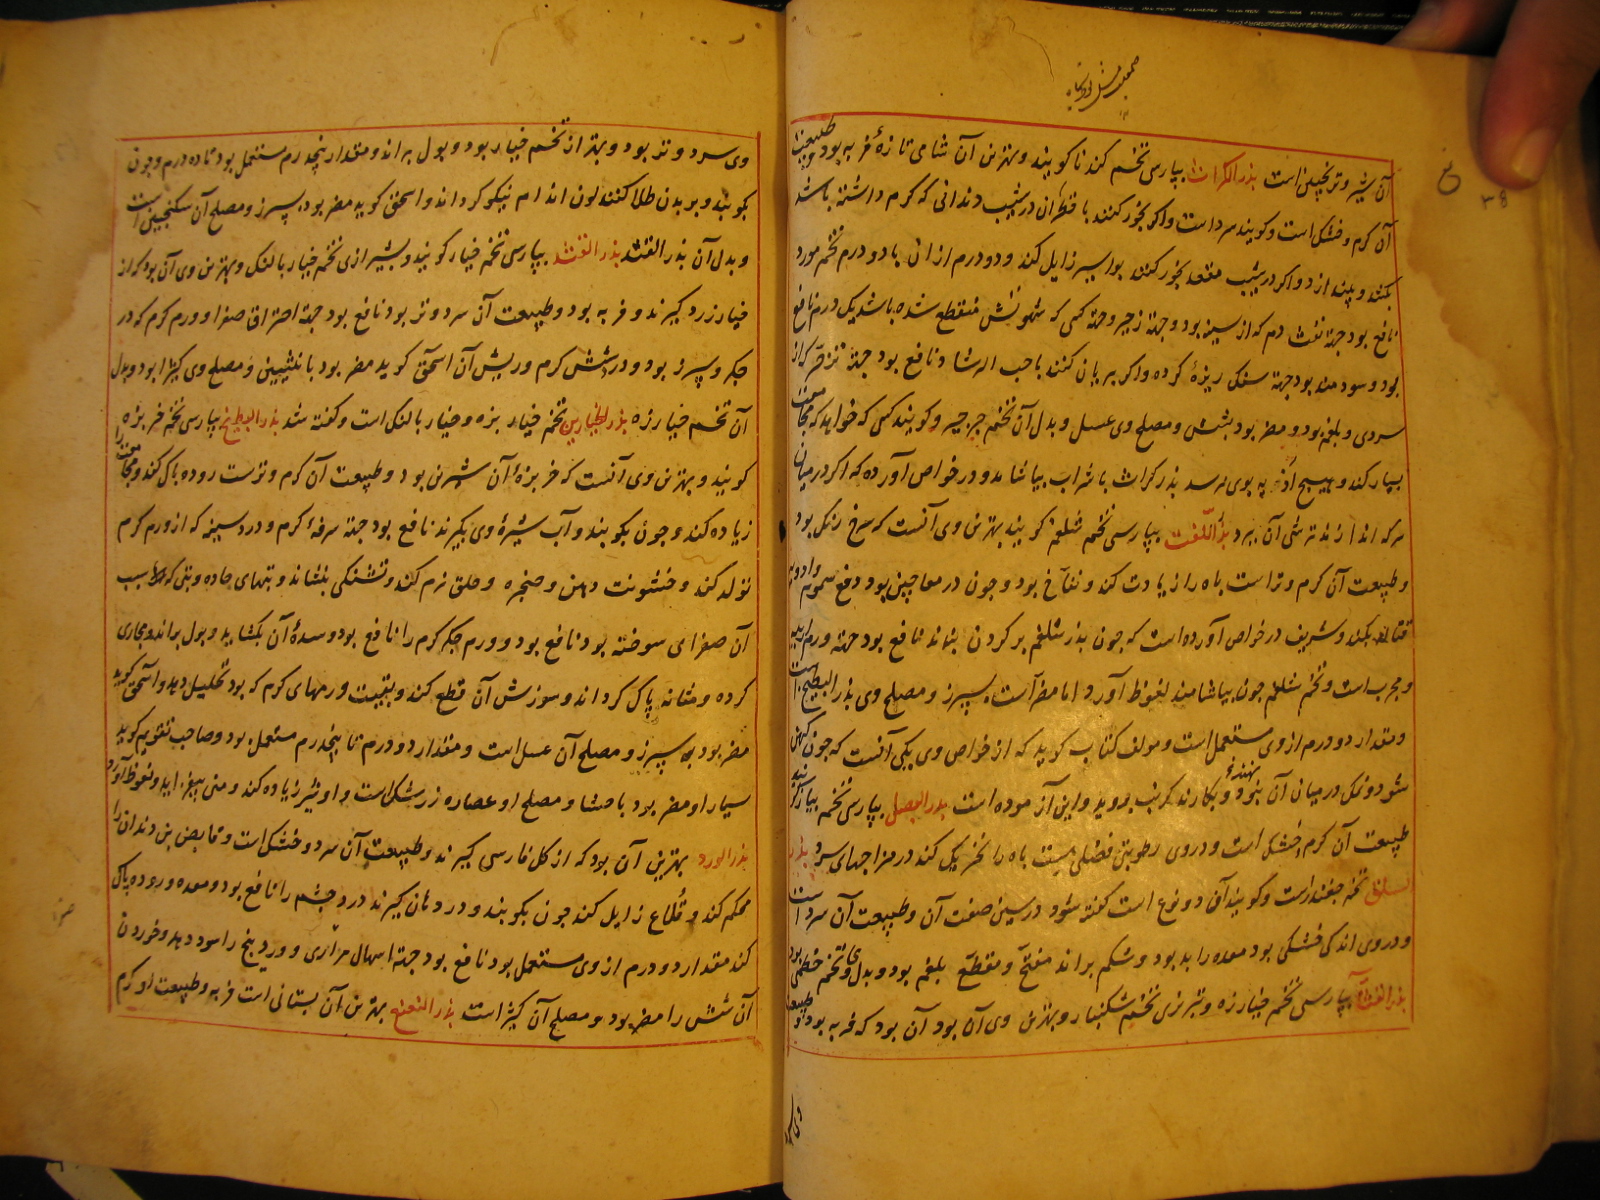 آن شیر و ترنجبین است بذر الکراث بپارسی تخم کندنا کویند و بهترین آن شامی تازهٔ فربه بود و طبیعت
آن کرم و خشک است و کویند سرد است و اکر بخور کنند با قطران در شیب دندانی که کرم داشته باشد
بکشد و بیندازد و اکر در شیب مقعد بخور کنند بواسیر زایل کند و دو درم از انی با دو درم تخم مورد
نافع بود جهة نفث دم که از سینه بود و جهة زحیر و جهة کسی که شهوتش منقطع شده باشد یک درم نافع
بود و سودمند بود جهة سنک ریزهٔ کرده و اکر بریان کنند با حب الرشاد نافع بود جهة که از
سردی و بلغم بود و مضر بود بشش و مصلح وی عسل و بدل آن تخم جرجیر و کویند کسی که خواهد که مجامعت
بسیار کند و هیچ اذیه بوی نرسد بذر کراث با شراب بیاشامد و در خواص آورده که اکر در میان
سرکه اندازند ترشی آن ببرد بذر اللفت بپارسی تخم شلغم کویند بهترین وی آنست که سرخ رنک بود
و طبیعت آن کرم و تر است باه را زیادت کند و نفاخ بود و چون در معاجین بود دفع سموم و ادویه
قتاله بکند و شریف در خواص آورده است که چون بذر شلغم بر کردن نافع بود جهة ورم
و مجرب است و تخم شلغم چون بیاشامند لغوظ آورد اما مضر است بسپرز و مصلح وی بذر البطیخ است
و مقدار دو درم از وی مستعمل است و مولف کتاب کوید که از خواص وی یکی آنست که چون کهن
شود و نکل در میان آن بنهند و بکارند کرنب بروید و این آزموده است بذر البصل بپارسی تخم پیاز کویند
طبیعت آن کرم و خشک است و در وی رطوبتی فضلی هست باه را تحریک کند در مزاجهای سرد بذر
السلق تخم چغندر است و کویند آن دو نوع است کفته شود در سین صفت آن و طبیعت آن سرد است
و در وی اندکی خشکی بود معده را بد بود و شکم براند مفتح و مقطع بلغم بود و بدل وی تخم خطمی بود
بذر القثا بپارسی تخم خیارزه و تبریزی تخم شنکیار و بهترین وی آن بود که فربه بود و طبیعت
وی سرد و تر بود و بهتر از تخم خیار بود و بول براند و مقدار پنجدرم مستعمل بود تا ده درم و چون
بکوبند و بر بدن طلا کنند لون اندام نیکو کرداند و اسحق کوید مضر بود بسپرز و مصلح آن سکنجبین است
و بدل آن بذر القثد بذر القثد بپارسی تخم خیار کویند و بشیرازی تخم خیار بالنک و بهترین وی آن بود که از
خیار زرد کیرند و فربه بود و طبیعت آن سرد و تر بود نافع بود جهة احتراق صفرا و ورم کرم که در
جکر و سپرز بود و درد شش کرم و ریش آن اسحق کوید مضر بود بانثیین و مصلح وی کتیرا بود و بدل
آن تخم خیارزه بذر الخیارین تخم خیار بزه و خیار بالنک است و کفته شد بذر البطیخ بپارسی تخم خربزه
کویند و بهترین وی آنست که خربزهٔ آن شیرین بود و طبیعت آن کرم و تر است روده پاک کند و مجامعت را
زیاده کند و چون بکوبند و آب شیرهٔ وی بکیرند نافع بود جهة سرفهٔ کرم و درد سینه که از ورم کرم
تولد کند و خشونت دهن و حنجره و حلق نرم کند و تشنکی بنشاند و تبهای حاده و تبی که سبب
آن صفرای سوخته بود نافع بود و ورم جکر کرم را نافع بود و سدهٔ آن بکشاید و بول براند و مجاری
کرده و مثانه پاک کرداند و سوزش آن قطع کند و بقیت ورمهای کرم که بود تحلیل دهد و اسحق کوید
مضر بود بسپرز و مصلح آن عسل است و مقدار دو درم تا پنجدرم مستعمل بود و صاحب تقویم کوید
بسیار او مضر بود باحشا و مصلح او عصاره زرشک است و او شیر زیاده کند و منی بیفزاید و نعوظ آورد
بذر الورد بهترین آن بود که از کل فارسی کیرند و طبیعت آن سرد و خشک است و قابض بن دندان را
محکم کند و قلاع زایل کند چون بکوبند و در دهان کیرند درد چشم را نافع بود و معده و روده پاک
کند مقدار دو درم از وی مستعمل بود نافع بود جهة اسهال مراری و را سود دهد و خوردن
آن شش را مضر بود و مصلح آن کثیرا است بذر النعنع بهترین آن بستانی است فربه و طبیعت او کرم